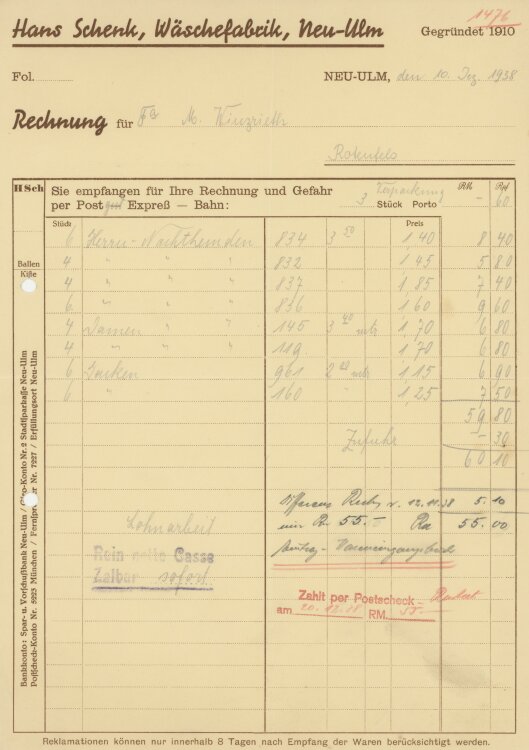 1476
Hans Schenk, Wäschefabrik, Neu-Ulm
Gegründet 1910
Fol.
NEU-ULM, den 10. Dez. 1938
Rechnung für Fa M.
Rotenfels
HSch
Sie empfangen für Ihre Rechnung und Gefahr
per Post Expreß — Bahn:
3 Verpackung
Stück Porto
RM. Rpf
- 60
Stück
Preis
6 Herren-Nachthemden 834 3 50 1,40 8 40
4 " " 832 1 45 5 80
4 " " 837 1,85 7 40
6 " " 836 1 60 9 60
4 Damen " 145 3 40 mtr 1,70 6 80
4 " " 119 1,70 6 80
6 Jacken 961 2 20 mtr 1 15 6 90
6 " 160 1,25 7 50
59 80
Zufuhr - 30
60 10
Ballen
Kiste
Bankkonto: Spar- u. Vorschußbank Neu-Ulm / Giro-Konto Nr. 2 Stadtsparkasse Neu-Ulm
Postscheck-Konto Nr. 5223 München / Fernsprecher Nr. 7227 / Erfüllungsort Neu-Ulm
v. 12.11.38 5.10
55.- 55.00
Lohnarbeit
Rein netto Casse
Zalbar sofort.
Zahlt per Postscheck
am 20.12.38 RM. 55.-
Reklamationen können nur innerhalb 8 Tagen nach Empfang der Waren berücksichtigt werden.